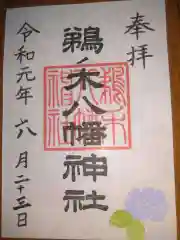 奉拝
鵜ノ木八幡神社
令和元年六月二十三日